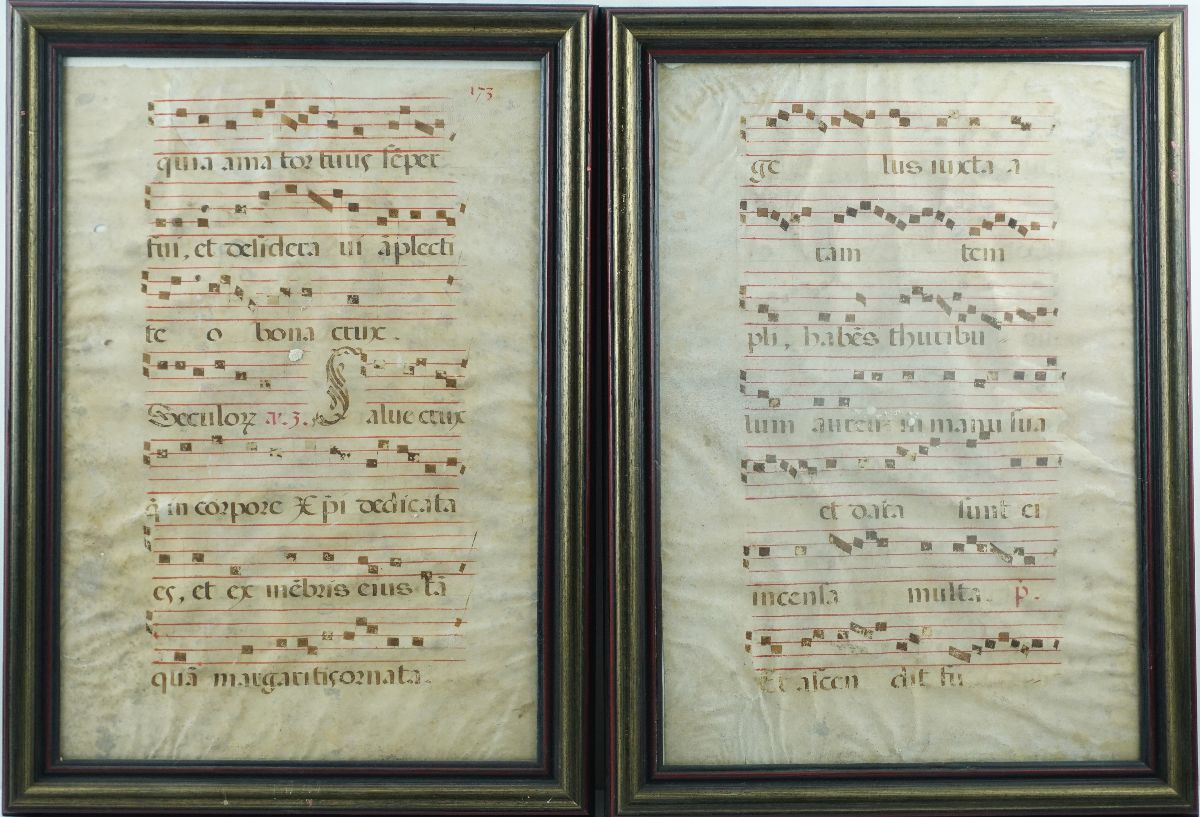 173
quia ama tor tuus sēper
fui, et desidera ui āplecti
te o bona crux.
Seculorꝝ a. 3. Salue crux
q̄ in corpore xp̄i dedicata
es, et ex mēbris eius tā
quā margaritis ornata.
ge lus iuxta a
ram tem
pli, habēs thuribu
lum aureū in manu sua
et data sunt ei
incensa multa. p̄.
Et ascen dit fu